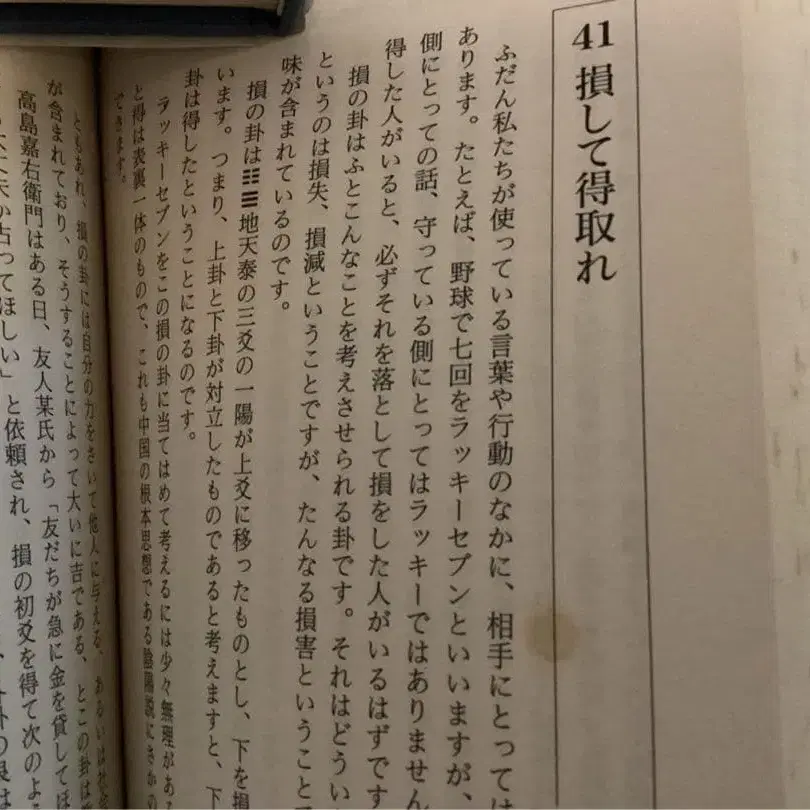 41 損して得取れ
ふだん私たちが使っている言葉や行動のなかに、相手にとっては
あります。たとえば、野球で七回をラッキーセブンといいますが、
側にとっての話、守っている側にとってはラッキーではありません
得した人がいると、必ずそれを落として損をした人がいるはずです
損の卦はふとこんなことを考えさせられる卦です。それはどうい
というのは損失、損減ということですが、たんなる損害ということで
味が含まれているのです。
損の卦は☷☰地天泰の三爻の一陽が上爻に移ったものとし、下を損
います。つまり、上卦と下卦が対立したものであると考えますと、下
卦は得したということになるのです。
ラッキーセブンをこの損の卦に当てはめて考えるには少々無理がある
と得は表裏一体のもので、これも中国の根本思想である陰陽説にさかの
できます。
ともあれ、損の卦には自分の力をさいて他人に与える、あるいは社会
が含まれており、そうすることによって大いに吉である、とこの卦は
高島嘉右衛門はある日、友人某氏から「友だちが急に金を貸してほ
占ってほしい」と依頼され、損の初爻を得て次のよ